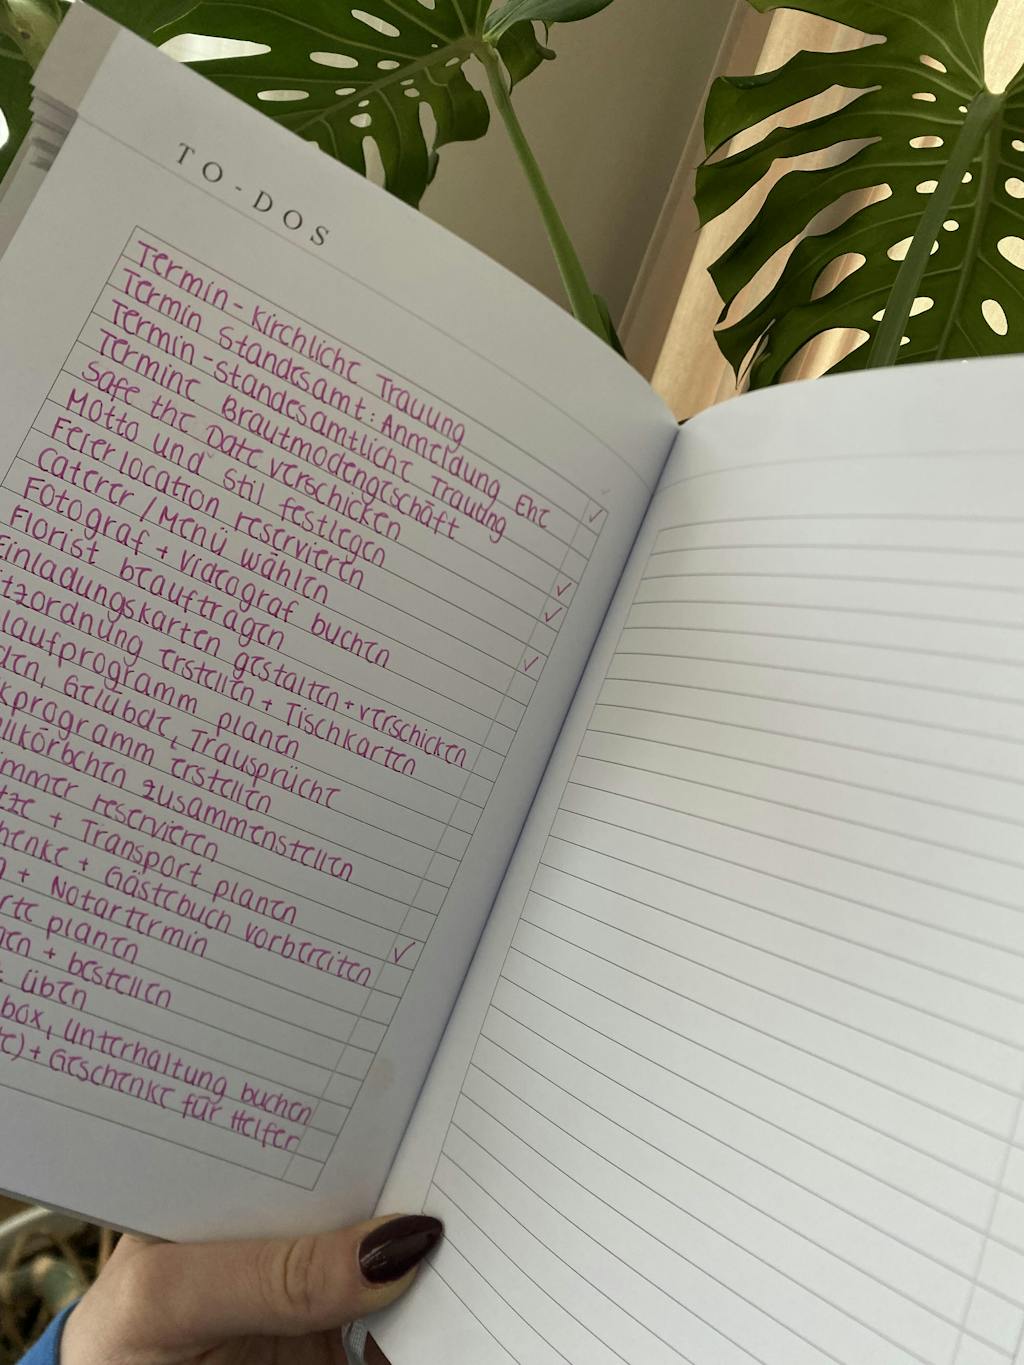 TO-DOS
Termin-Kirchliche Trauung
Termin Standesamt: Anmeldung Ehe
Termin-standesamtliche Trauung
Termine Brautmodengeschäft
Safe the Date verschicken
Motto und Stil festlegen
Feierlocation reservieren
Caterer/Menü wählen
Fotograf + Videograf buchen
Florist beauftragen
Einladungskarten gestalten + verschicken
tzordnung erstellen + Tischkarten
laufprogramm planen
den, Gelübde, Trausprüche
kprogramm erstellen
llkörbchen zusammenstellen
immer reservieren
tze + Transport planen
henke + Gästebuch vorbereiten
+ Notartermin
rte planen
en + bestellen
üben
box, Unterhaltung buchen
te) + Geschenke für Helfer